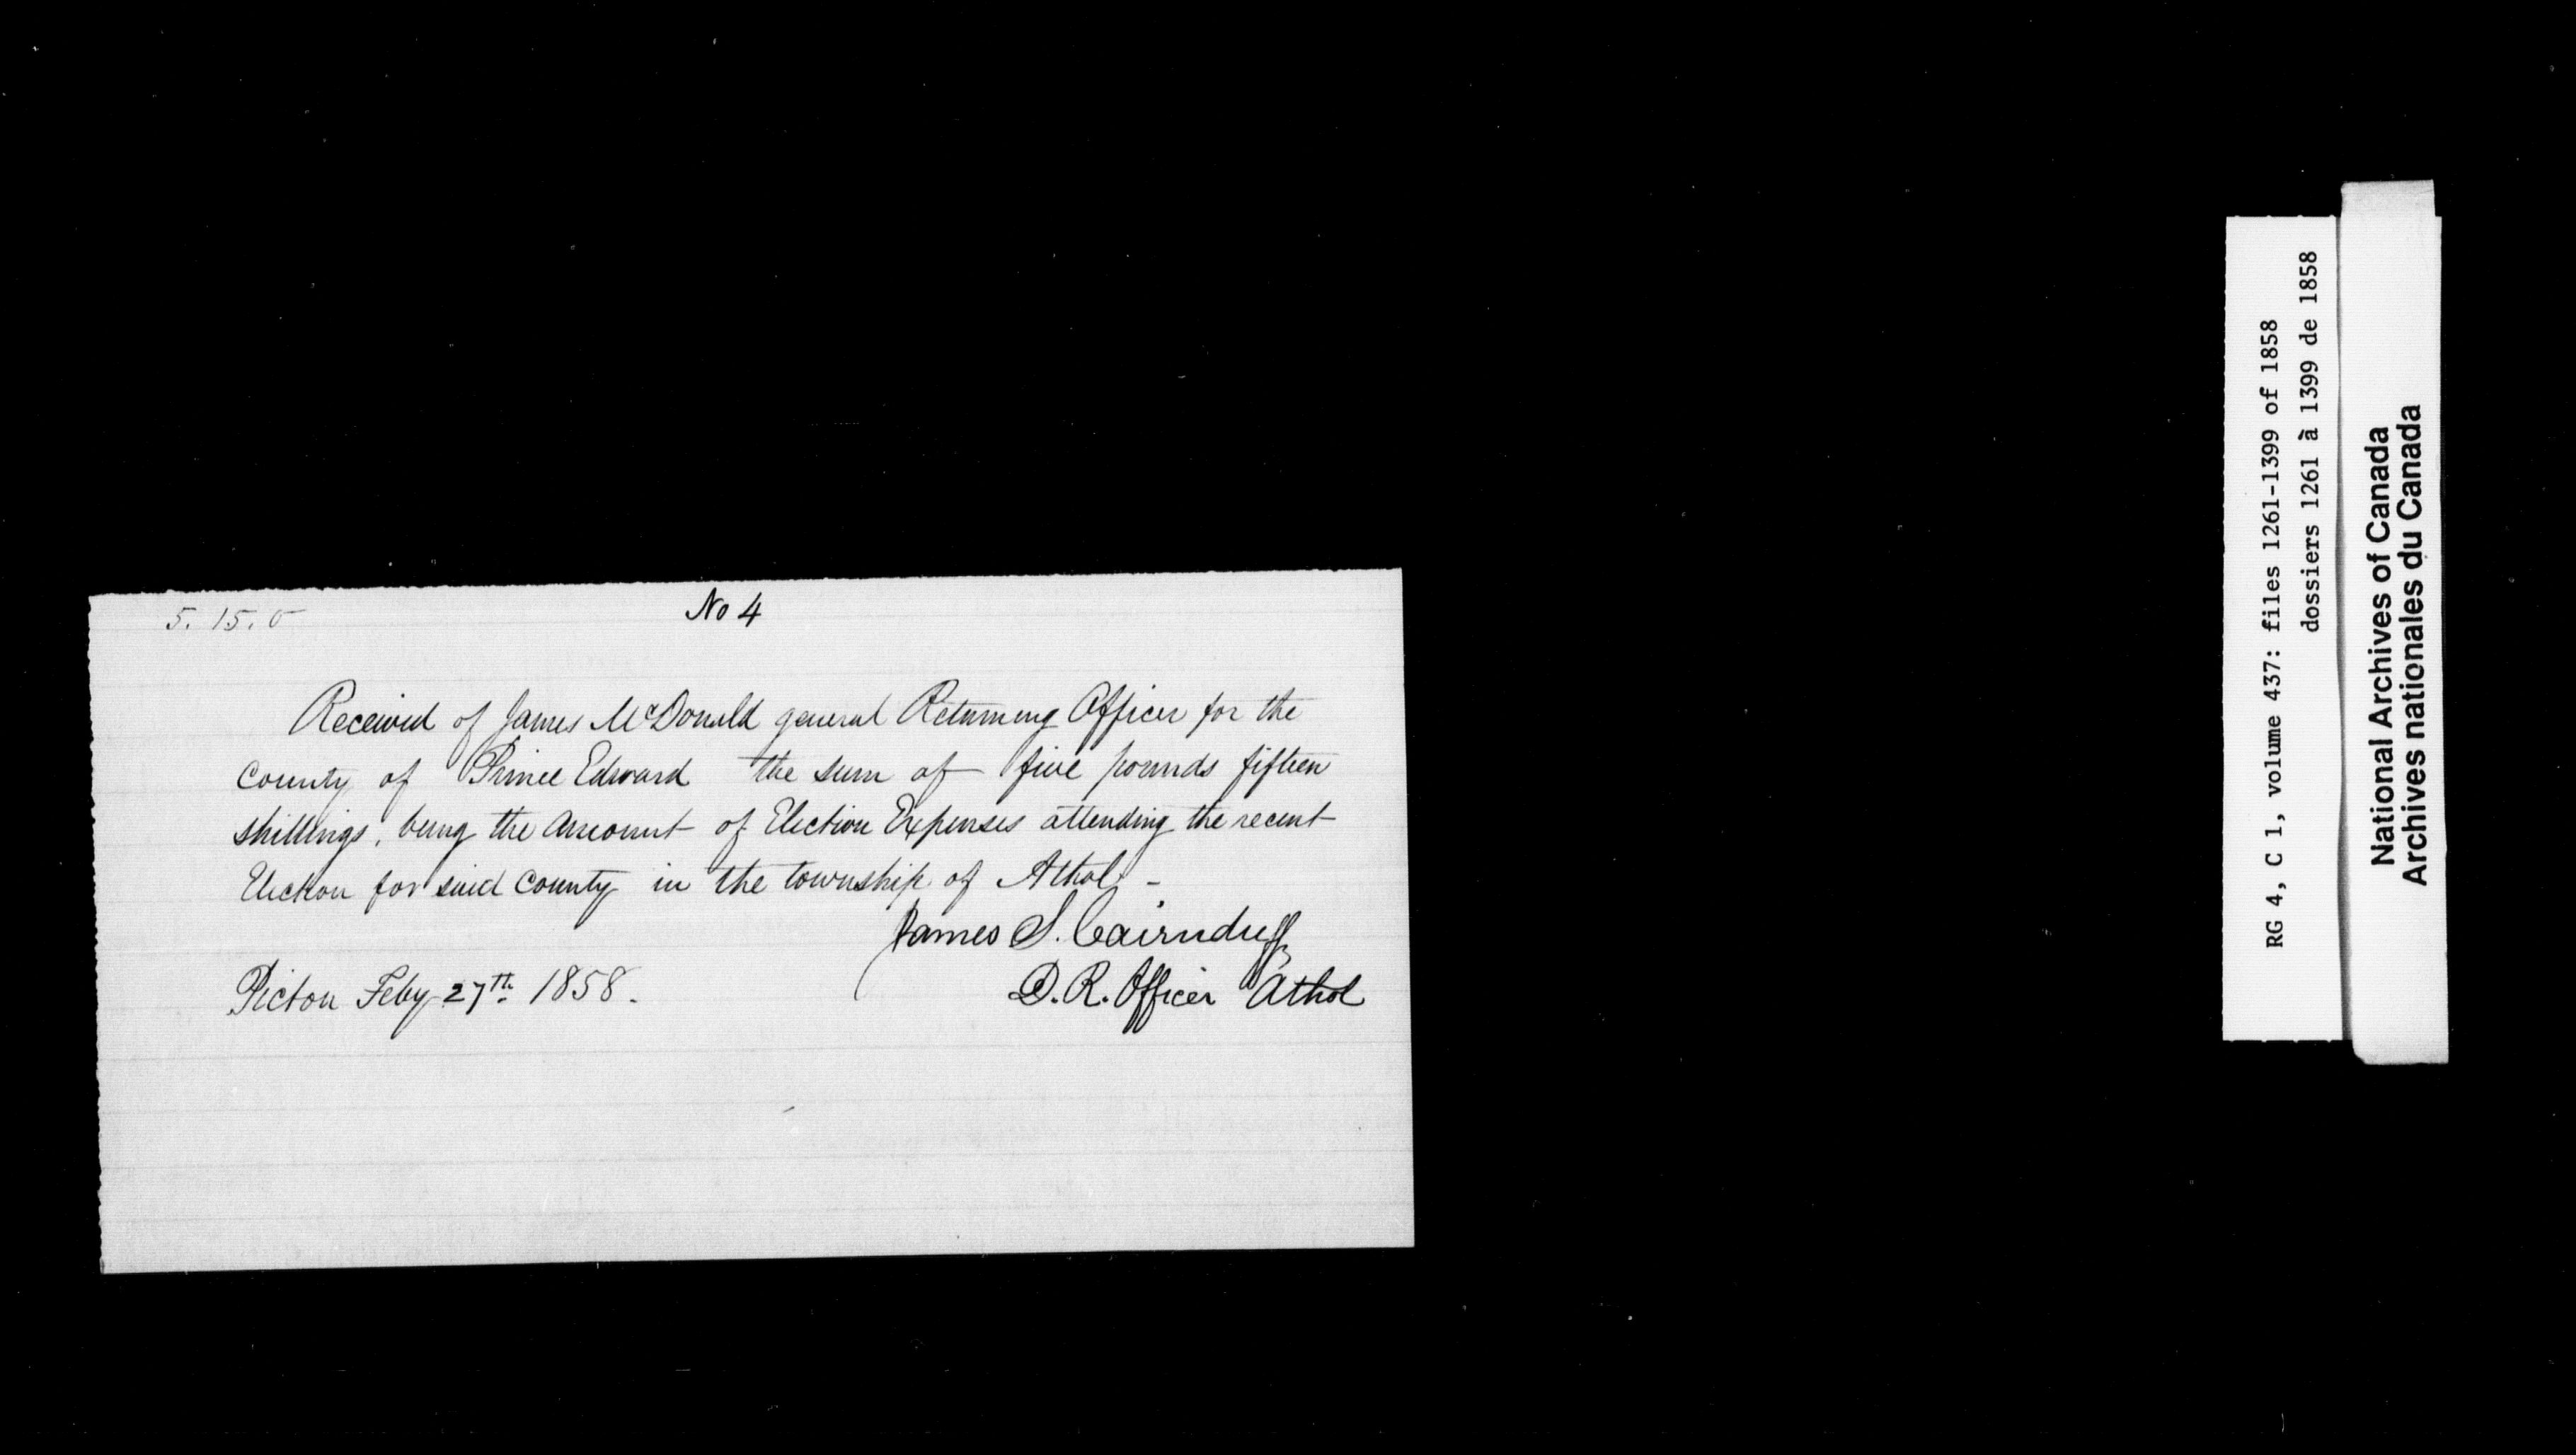 5. 15. 0
No 4
Received of James McDonald general Returning Officer for the
County of Prince Edward the sum of five pounds fifteen
shillings, being the amount of Election Expenses attending the recent
Election for said County in the township of Athol -
James S. Cairnduff
D. R. Officer Athol
Picton Feby 27th 1858.
RG 4, C 1, volume 437: files 1261-1399 of 1858
dossiers 1261 à 1399 de 1858
National Archives of Canada
Archives nationales du Canada